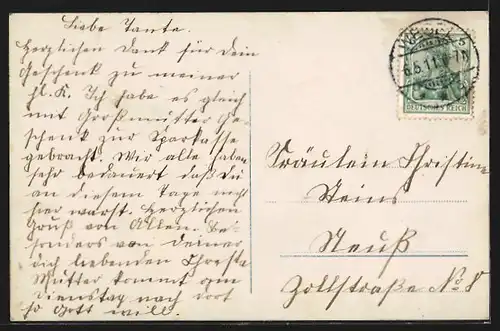 Liebe Tante.
Herzlichen Dank für dein
Geschenk zu meiner
hl. K. Ich habe es gleich
mit Großmutter Ge-
schenk zur Sparkasse
gebracht. Wir alle haben
sehr bedauert daß Du
an diesem Tage nicht
hier warst. Herzlichen
Gruß von Allen. Be-
sonders von deiner
dich liebenden
Mutter kommt am
Dienstag nach dort
so Gott will.
5
8.5.11.
DEUTSCHES REICH
Fräulein Christine
Steins
Neuß
Zollstraße No 8